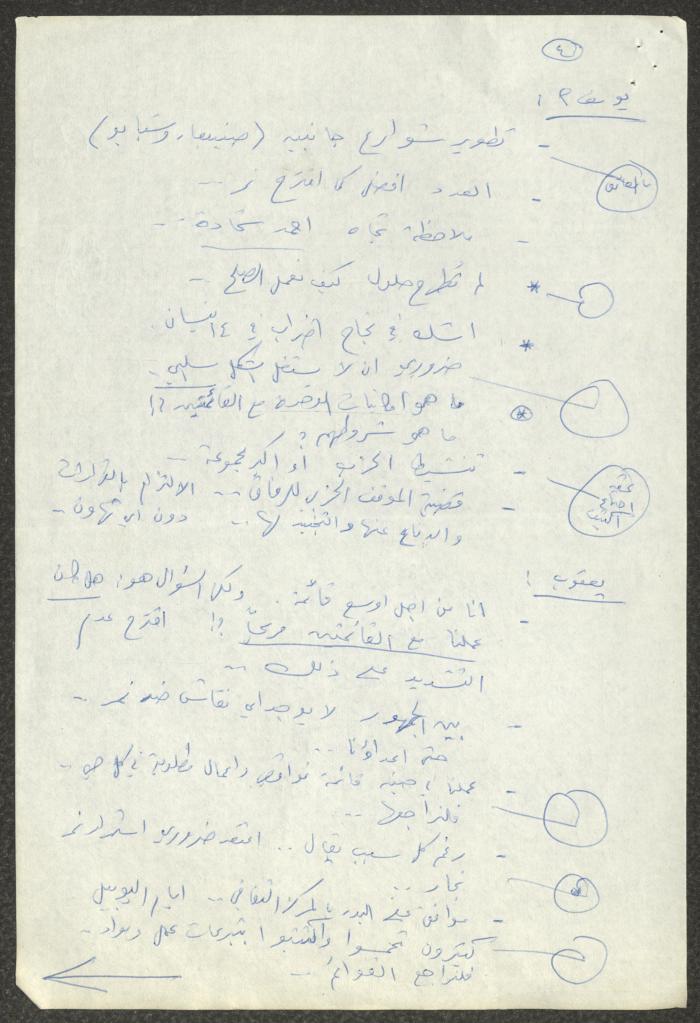 ٤
يوسف م :
- تطوير شوارع جانبية (صنيبعة، وستيا بو)
- العدد افضل كما اقترح نمر ..
- ملاحظة تجاه احمد شحادة ..
* لم تطرح حلول كيف نعمل الصلح ..
* اشك في نجاح اضراب في ١٤ نيسان.
ضروري ان لا ستغل بشكل سلبي ..
* ما هو امكانيات الوحدة مع القائمتين ؟!
ما هو شروطهم ؟
- تنشيط الحزب أو اكبر مجموعة ..
- قضية الموقف الحزبي للرفاق .. الالتزام بالقرارات
والدفاع عنها والتجنيد لها .. دون اي تهاون ..
يعقوب :
- انا من اجل اوسع قائمة . ولكن السؤال هو: هل كان
عملنا مع القائمتين مربحاً ؟! اقترح عدم
التشديد على ذلك ..
- بين الجمهور لا يوجد اي نقاش ضد نمر ..
حتى اعداؤنا ..
- عملنا قائمة نواقص واعمال مطلوبة في كل حي ..
فلنراجعها ..
- رغم كل سبب يقال .. اعتقد ضروري استمرار نمر
نجار ..
- موافق على البدء بالمركز الثقافي .. ايام اليوبيل
كثيرون تحمسوا واكتتبوا بتبرعات عمل ومواد ..
فلنراجع القوائم ..